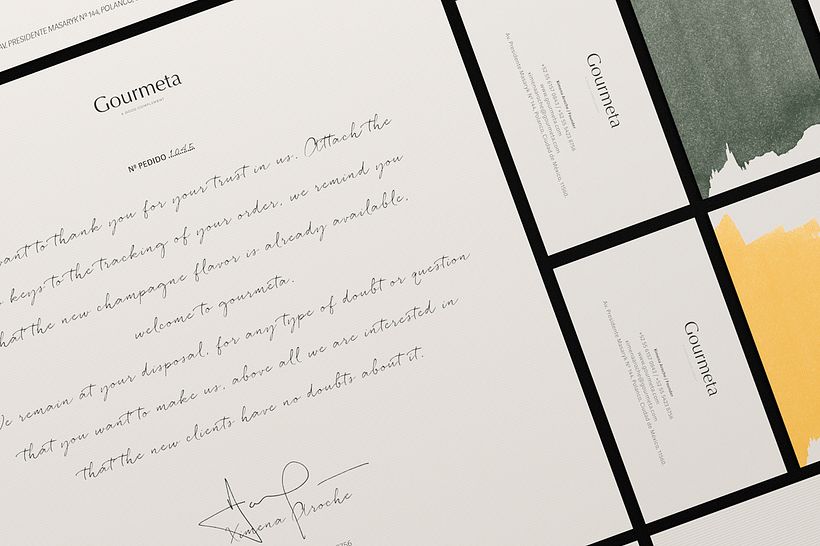 AV. PRESIDENTE MASARYK Nº 144, POLANCO,
Gourmeta
A GOOD COMPLEMENT
Nº PEDIDO 1045
want to thank you for your trust in us. Attach the
keys to the tracking of your order, we remind you
that the new champagne flavor is already available.
welcome to gourmeta.
We remain at your disposal, for any type of doubt or question
that you want to make us, above all we are interested in
that the new clients have no doubts about it.
Ximena Aroche
Gourmeta
Ximena Aroche / Founder
www.gourmeta.com
Av. Presidente Masaryk Nº 144, Polanco, Ciudad de México, 11560
Gourmeta
Ximena Aroche / Founder
www.gourmeta.com
Av. Presidente Masaryk Nº 144, Polanco, Ciudad de México, 11560